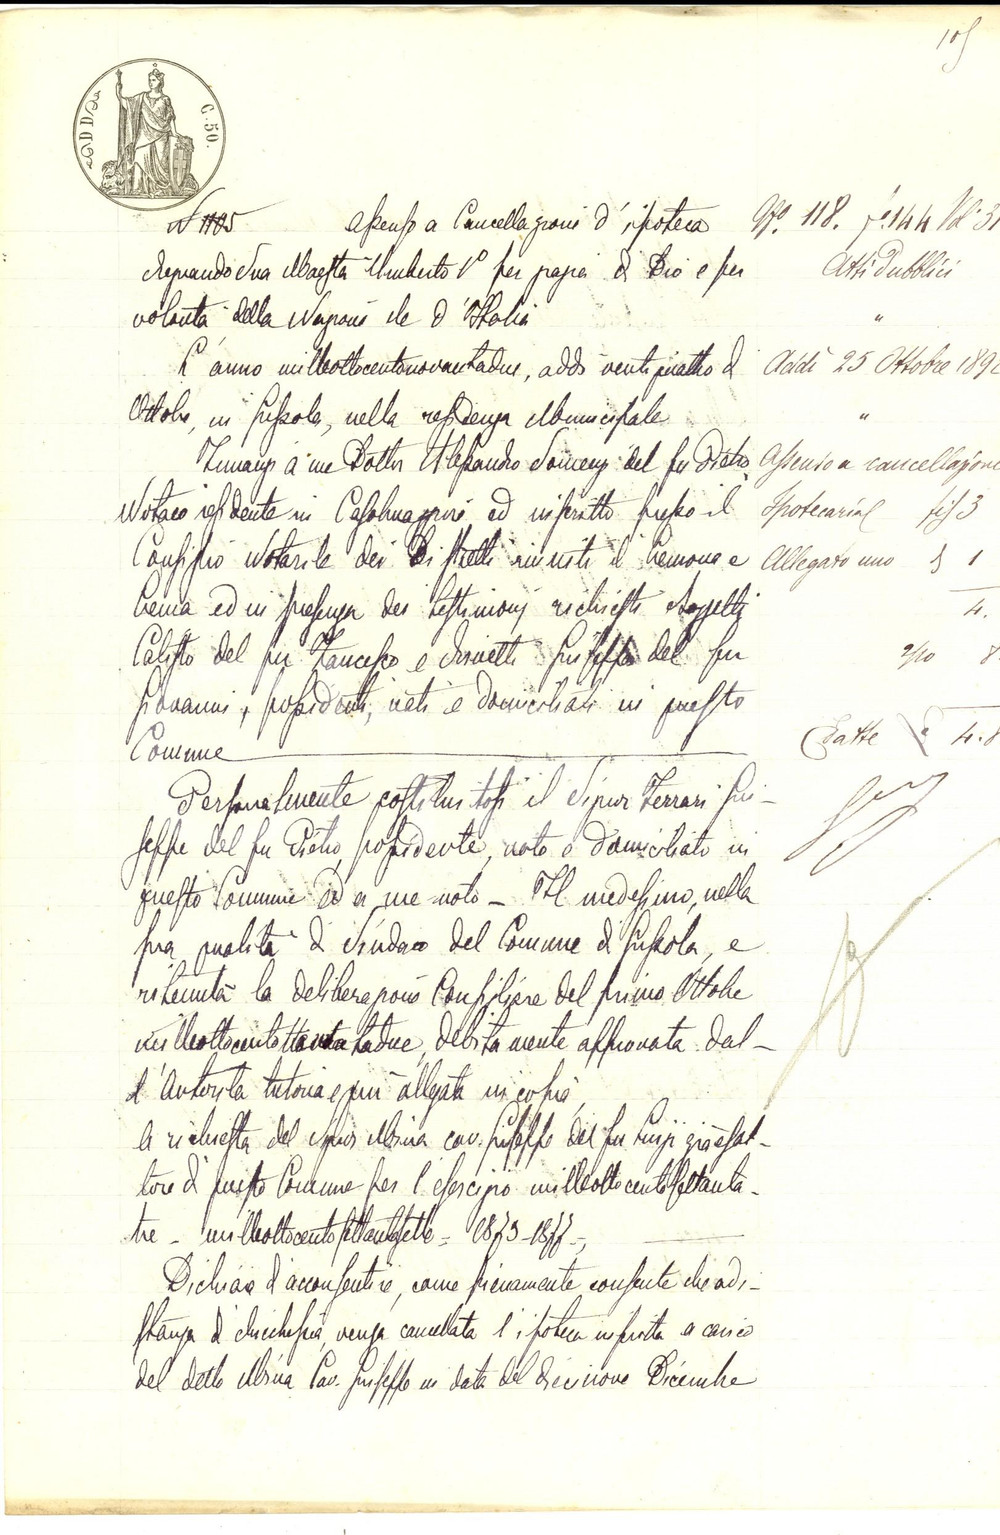 105
D D
C. 50.
N 1185 Assenso a Cancellazione d'ipoteca
Regnando Sua Maestà Umberto I° per grazia di Dio e per
volontà della Nazione Re d'Italia
L'anno milleottocentonovantadue, addì ventiquattro di
Ottobre, in Gussola, nella residenza Municipale
Innanzi a me Dottor Alessandro del fu Pietro
Notaio residente in Casalmaggiore ed inscritto presso il
Consiglio Notarile dei Distretti riuniti di Cremona e
Crema ed in presenza dei testimonj richiesti
Calisto del fu Francesco e Giuseppe del fu
Giovanni, possidenti, nati e domiciliati in questo
Comune
Personalmente costituitosi il Signor Ferrari Giu-
seppe del fu Pietro, possidente, nato e domiciliato in
questo Comune ed a me noto - Il medesimo, nella
sua qualità di Sindaco del Comune di Gussola, e
ritenuta la deliberazione Consigliare del primo Ottobre
debitamente approvata dal-
l'Autorità tutoria e qui allegata in copia,
A richiesta del Signor Mina cav. Giuseppe del fu Luigi già esat-
tore di questo Comune per l'esercizio milleottocentosettanta-
tre - milleottocentosettantasette - 1873-1877 -,
Dichiara d'acconsentire, come pienamente consente che ad i-
stanza di chicchessia, venga cancellata l'ipoteca inscritta a carico
del detto Mina Cav. Giuseppe in data del diecinove Dicembre
N°. 118. f° 144 Vol. 31
Atti Pubblici
"
Addì 25 Ottobre 189
"
Assenso a cancellazione
Ipotecaria fis 3
Allegato uno 1
4.
8
Esatte 4.8